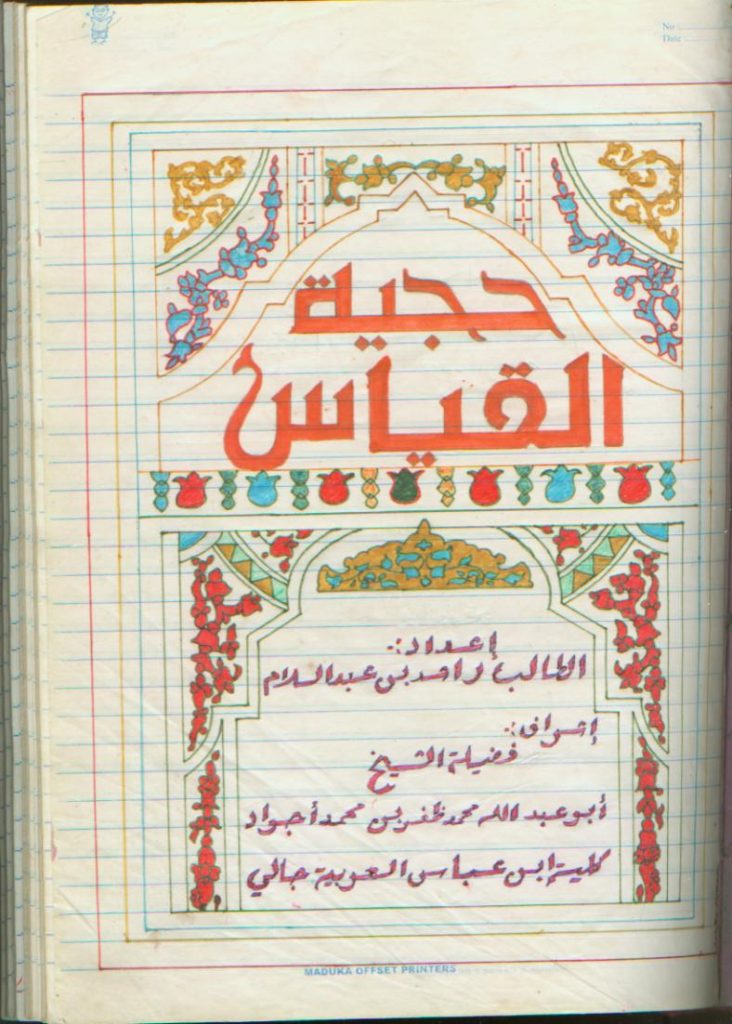 No
Date
حجية
القياس
إعداد:-
الطالب/ راحد بن عبد السلام
إشراف:-
فضيلة الشيخ
أبو عبد الله محمد ظفر بن محمد أجواد
كلية إبن عباس العربية جالي
MADUKA OFFSET PRINTERS